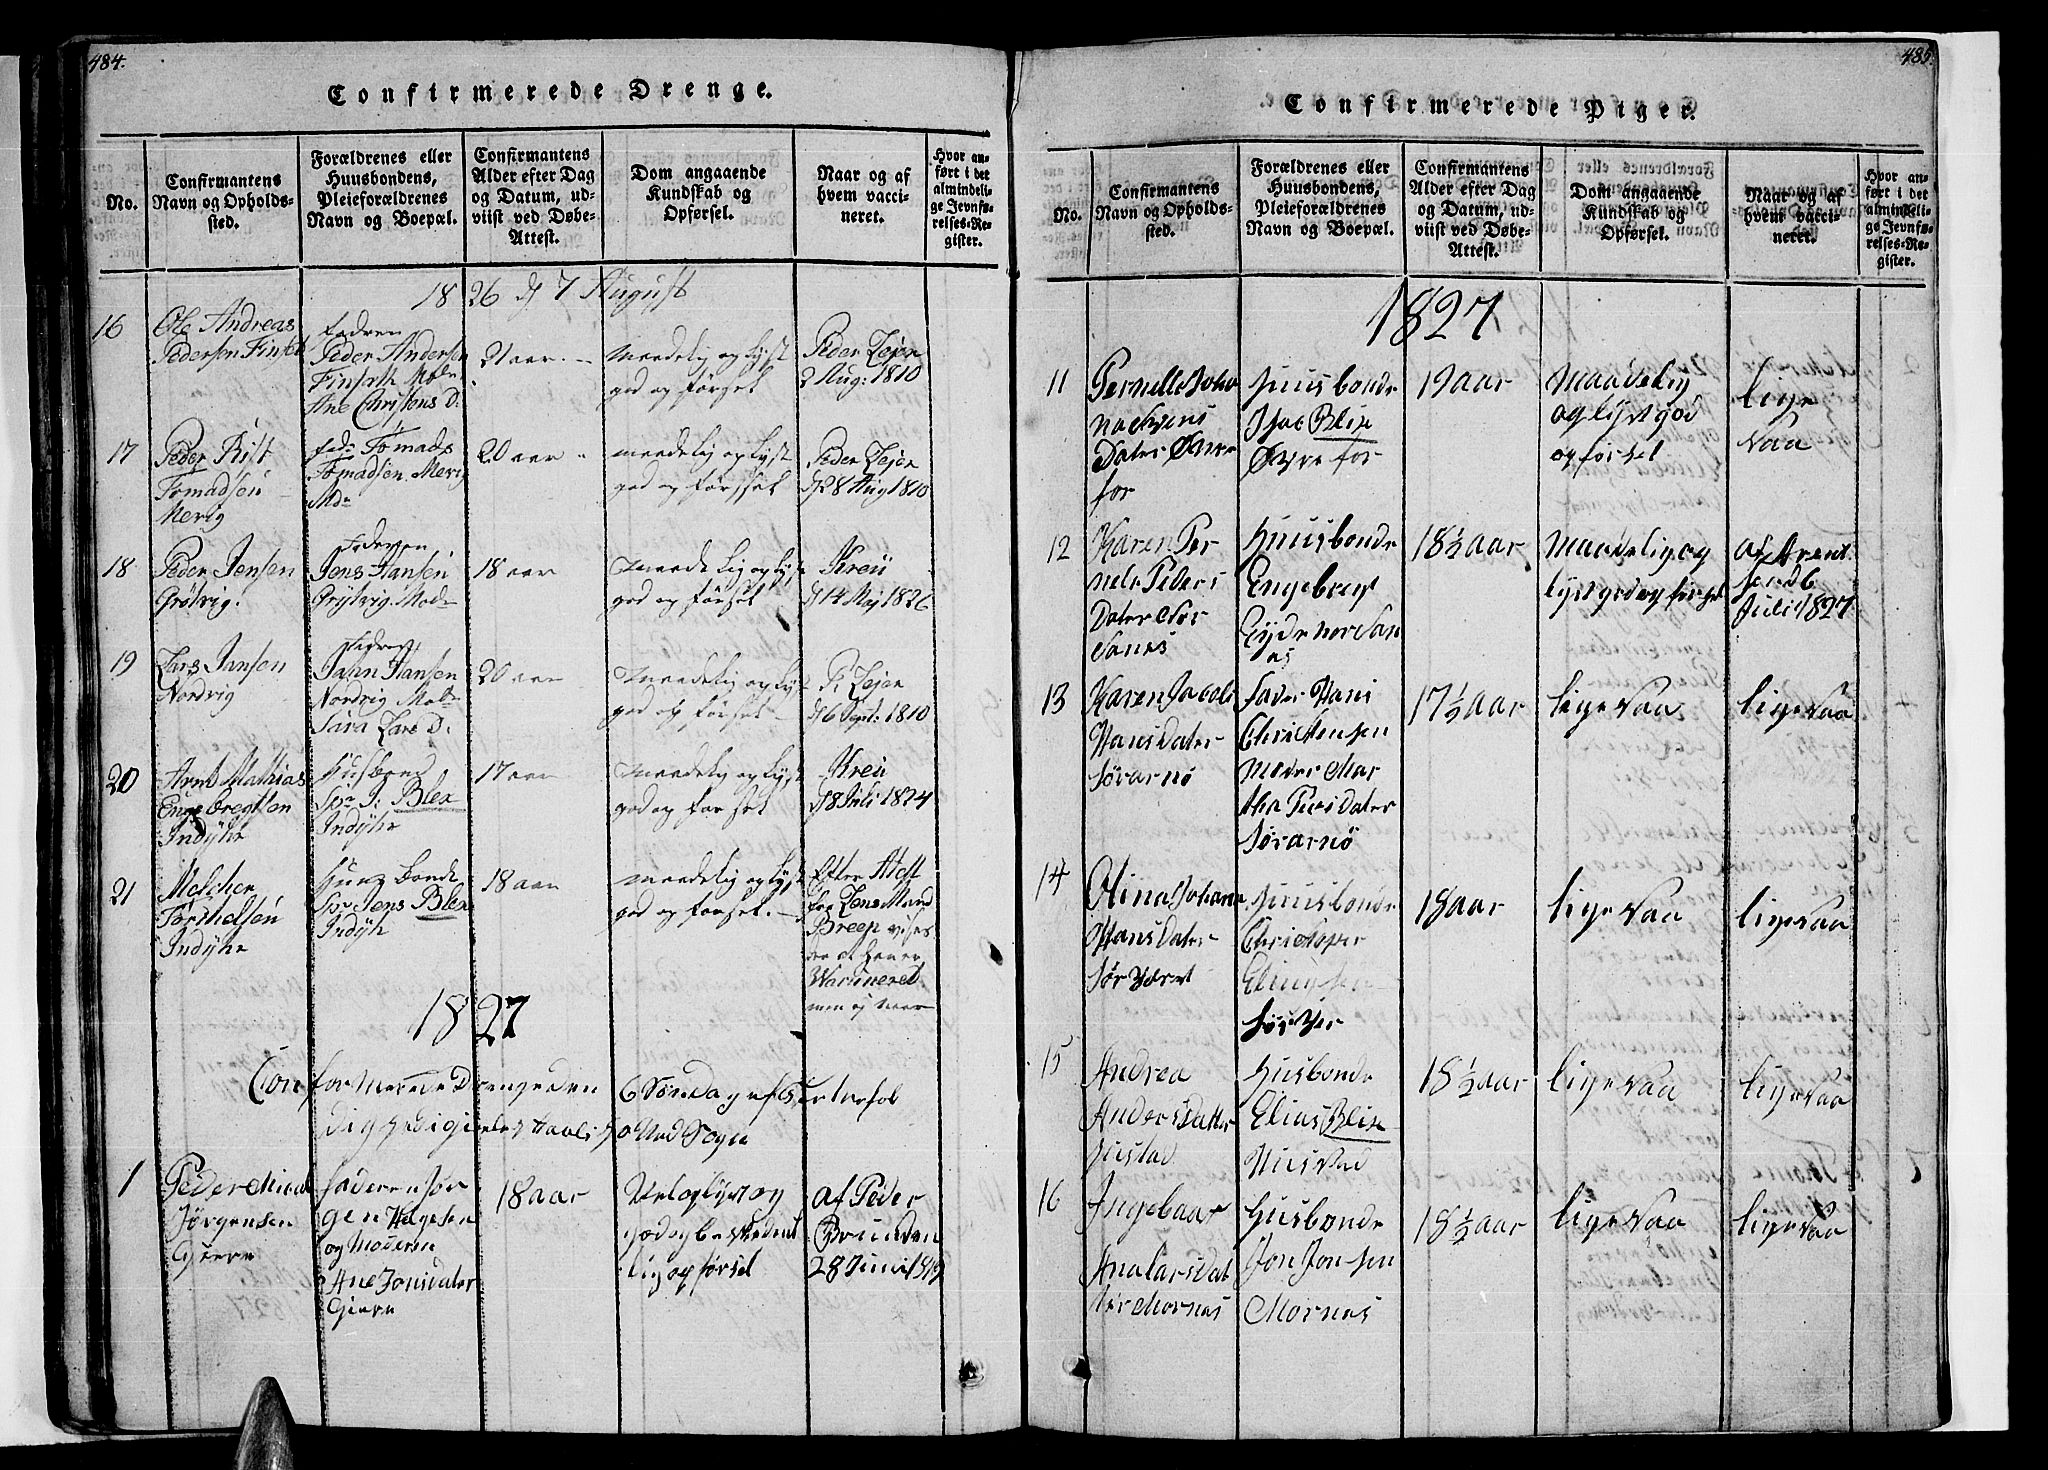 484.
Confirmerede Drenge.
No.
Confirmantens
Navn og Opholds-
sted.
Forældrenes eller
Huusbondens,
Pleieforældrenes
Navn og Boepæl.
Confirmantens
Alder efter Dag
og Datum, ud-
viist ved Døbe-
Attest.
Dom angaaende
Kundskab og
Opførsel.
Naar og af
hvem vacci-
neret.
Hvor an-
ført i det
almindeli-
ge Jevnfø-
relses-Re-
gister.
1826 d 7 August
16
Ole Andreas
Pedersen Finset
fadren
Peder Andersen
Finseth Mode
Ane Christens D.
21 aar
maadelig og lyst
god opførsel
Peder Zejer
2 Aug: 1810
17
Peder Rist
Tomadsen
Mevig
fad: Tomads
Tomadsen Mevig
Mdr
20 aar
maadelig og lyst
god og førsel
Peder Zejer
d 28 Aug 1810
18
Peder Jensen
Grötvig.
Faderen
Jens Hansen
Grötvig Mod
18 aar
maadelig og lyst
god og førsel
Kreü
d 14 Maj 1826
19
Lars Jansen
Nordvig
Fadren
Jahn Hansen
Nordvig Mod
Sara Lars D.
20 aar
maadelig og lyst
god og førsel
P. Zejer
d 6 Sept: 1810
20
Arnt Mathias
Engebregtsen
Indÿhr
Husbond
Sr J: Blex
Indÿhr
17 aar
maadelig og lyst
god og forsel
Kreü
d 8 Juli 1824
21
Melcher
Torkelsen
Indÿhr
Husbonde
Sr Jens Blex
Indÿh
18 aar
maadelig og lyst
god og forsel.
Efter Atest
fra Lens Mand
Breep vises
der at han er
Waxineret
men ej naar
1827
Conformerede Drenge den 6 Søndag
1
Peder Micol
Jørgensen
Gjerre
faderen Jør
gen Helgesen
og Moderen
Ane Jonsdater
Gierre
18 aar
Vel oplyst og
god og beskeden
lig opførsel
af Peder
Brunden
28 Juni 1819
485.
Confirmerede Piger.
No.
Confirmantens
Navn og Opholds-
sted.
Forældrenes eller
Huusbondens,
Pleieforældrenes
Navn og Boepæl.
Confirmantens
Alder efter Dag
og Datum, ud-
viist ved Døbe-
Attest.
Dom angaaende
Kundskab og
Opførsel.
Naar og af
hvem vacci-
neret.
Hvor an-
ført i det
almindeli-
ge Jevnfø-
relses-Re-
gister.
1827
11
Pernelle Joha
na
Dater
for
Huusbonde
Isac Blix
for
19 aar
Maadelig
og lyst god
opførsel
lige
saa
12
Karen Per
nele Peders
Dater Nor
Sanes
Huusbonde
Engebregt
Eyde Nor San
es
18½ aar
Maadelig og
lyst god og førsel
af Arent
sen d 6
Juli 1827
13
Karen Jacobe
Hansdater
Sørarnö
fader Hans
Christensen
Moder Mar
tha Persdater
Sørarnö
17½ aar
lige saa
lige saa
14
Olina Johana
Hansdater
Sør Været
Huusbonde
Christopher
Sør Ver
18 aar
lige saa
lige saa
15
Andrea
Andersdatter
Hustad
Husbonde
Elias Blix
Husstad
18½ aar
lige saa
lige saa
16
Ingebaar
Ana Larsdat
ter Mornes
Husbonde
Jon Jonsen
Mornes
18½ aar
lige saa
lige saa